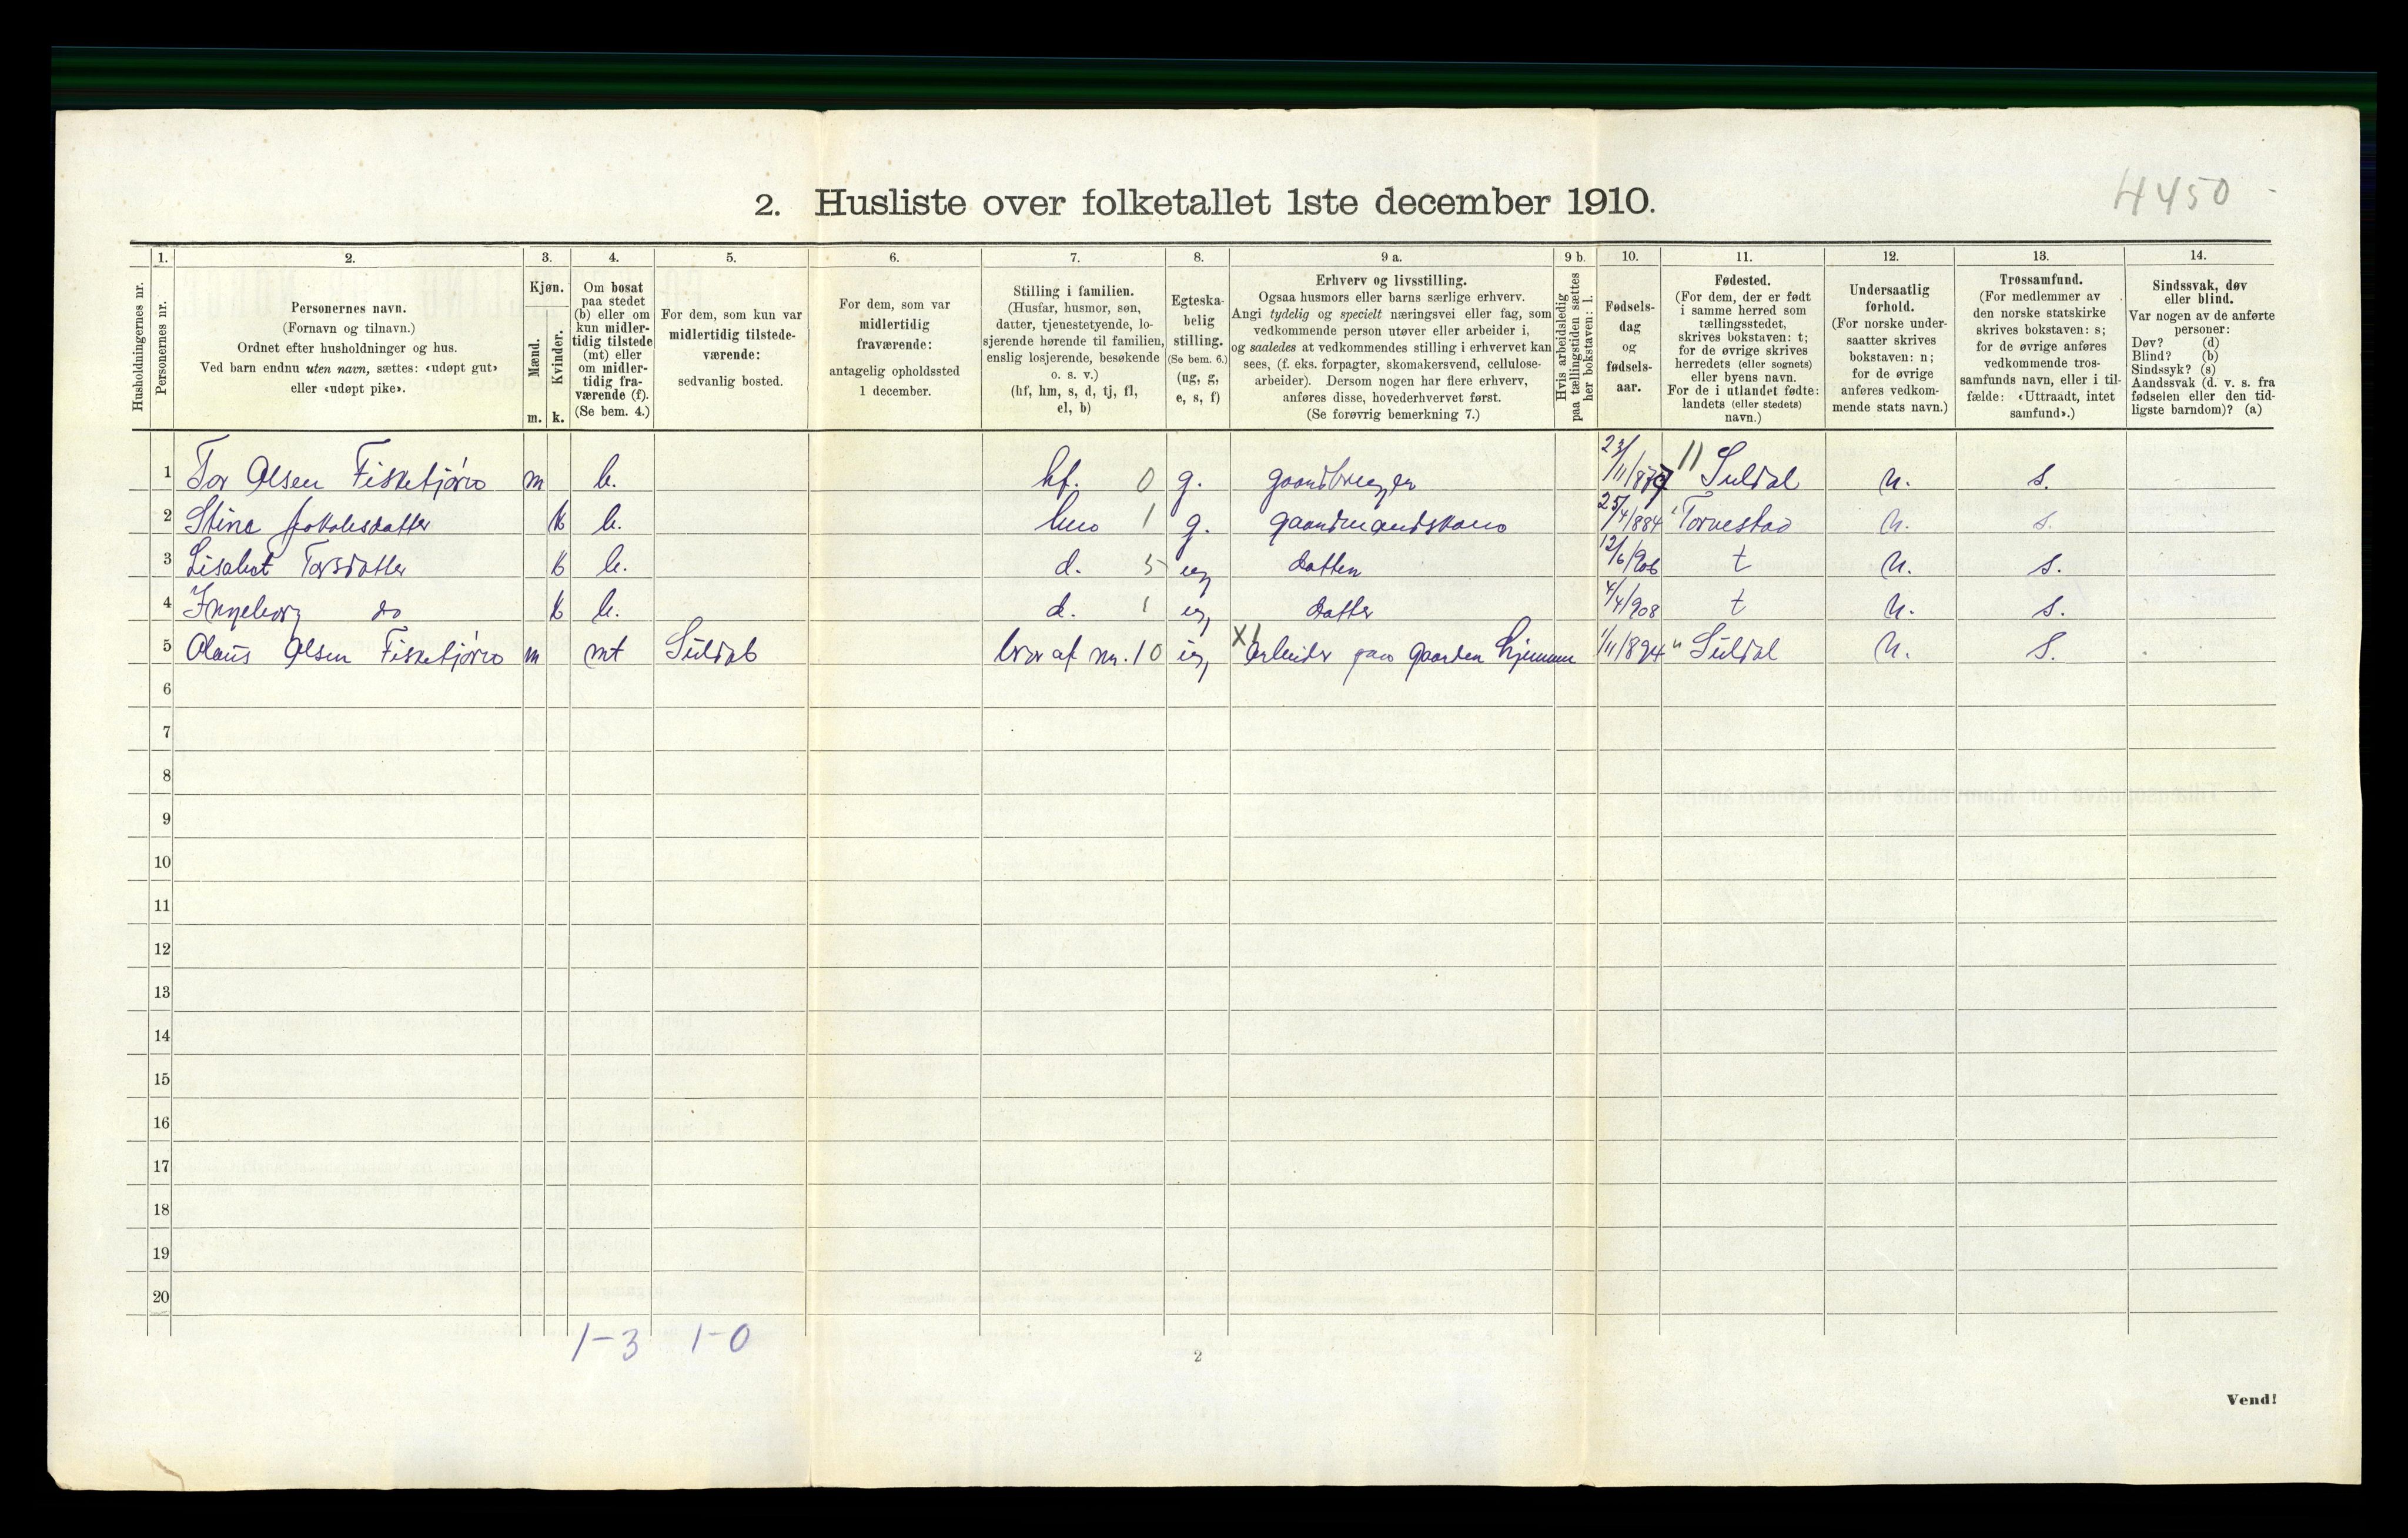 4450
2. Husliste over folketallet 1ste december 1910.
Husholdningernes nr.
1. Personernes nr.
2. Personernes navn. (Fornavn og tilnavn.) Ordnet efter husholdninger og hus. Ved barn endnu uten navn, sættes: «udøpt gut» eller «udøpt pike».
3. Kjøn. Mænd. m. Kvinder. k.
4. Om bosat paa stedet (b) eller om kun midlertidig tilstede (mt) eller om midlertidig fraværende (f). (Se bem. 4.)
5. For dem, som kun var midlertidig tilstedeværende: sedvanlig bosted.
6. For dem, som var midlertidig fraværende: antagelig opholdssted 1 december.
7. Stilling i familien. (Husfar, husmor, søn, datter, tjenestetyende, losjerende hørende til familien, enslig losjerende, besøkende o. s. v.) (hf, hm, s, d, tj, fl, el, b)
8. Egteskabelig stilling. (Se bem. 6.) (ug, g, e, s, f)
9 a. Erhverv og livsstilling. Ogsaa husmors eller barns særlige erhverv. Angi tydelig og specielt næringsvei eller fag, som vedkommende person utøver eller arbeider i, og saaledes at vedkommendes stilling i erhvervet kan sees, (f. eks. forpagter, skomakersvend, cellulosearbeider). Dersom nogen har flere erhverv, anføres disse, hovederhvervet først. (Se forøvrig bemerkning 7.)
9 b. Hvis arbeidsledig paa tællingstiden sættes her bokstaven: l.
10. Fødselsdag og fødselsaar.
11. Fødested. (For dem, der er født i samme herred som tællingsstedet, skrives bokstaven: t; for de øvrige skrives herredets (eller sognets) eller byens navn. For de i utlandet fødte: landets (eller stedets) navn.)
12. Undersaatlig forhold. (For norske undersaatter skrives bokstaven: n; for de øvrige anføres vedkommende stats navn.)
13. Trossamfund. (For medlemmer av den norske statskirke skrives bokstaven: s; for de øvrige anføres vedkommende trossamfunds navn, eller i tilfælde: «Uttraadt, intet samfund».)
14. Sindssvak, døv eller blind. Var nogen av de anførte personer: Døv? (d) Blind? (b) Sindssyk? (s) Aandssvak (d. v. s. fra fødselen eller den tidligste barndom)? (a)
1 Tor Olsen Fisketjøno m b. hf. 0 g. gaardbruger 23/11/879 11 Suldal n. s.
2 Stine k b. hmo 1 g. gaardmandskono 25/4/884 Torvestad n. s.
3 Lisabet Torsdatter k b. d. 5 ug datter 12/6/906 t n. s.
4 Ingeborg do k b. d. 1 ug datter 4/4/908 t n. s.
5 Olaus Olsen Fisketjøno m mt Suldal bror af nr. 1 0 ug X arbeider paa gaarden hjemme 1/11/894 " Suldal n. s.
6
7
8
9
10
11
12
13
14
15
16
17
18
19
20
1-3 1-0
2
Vend!